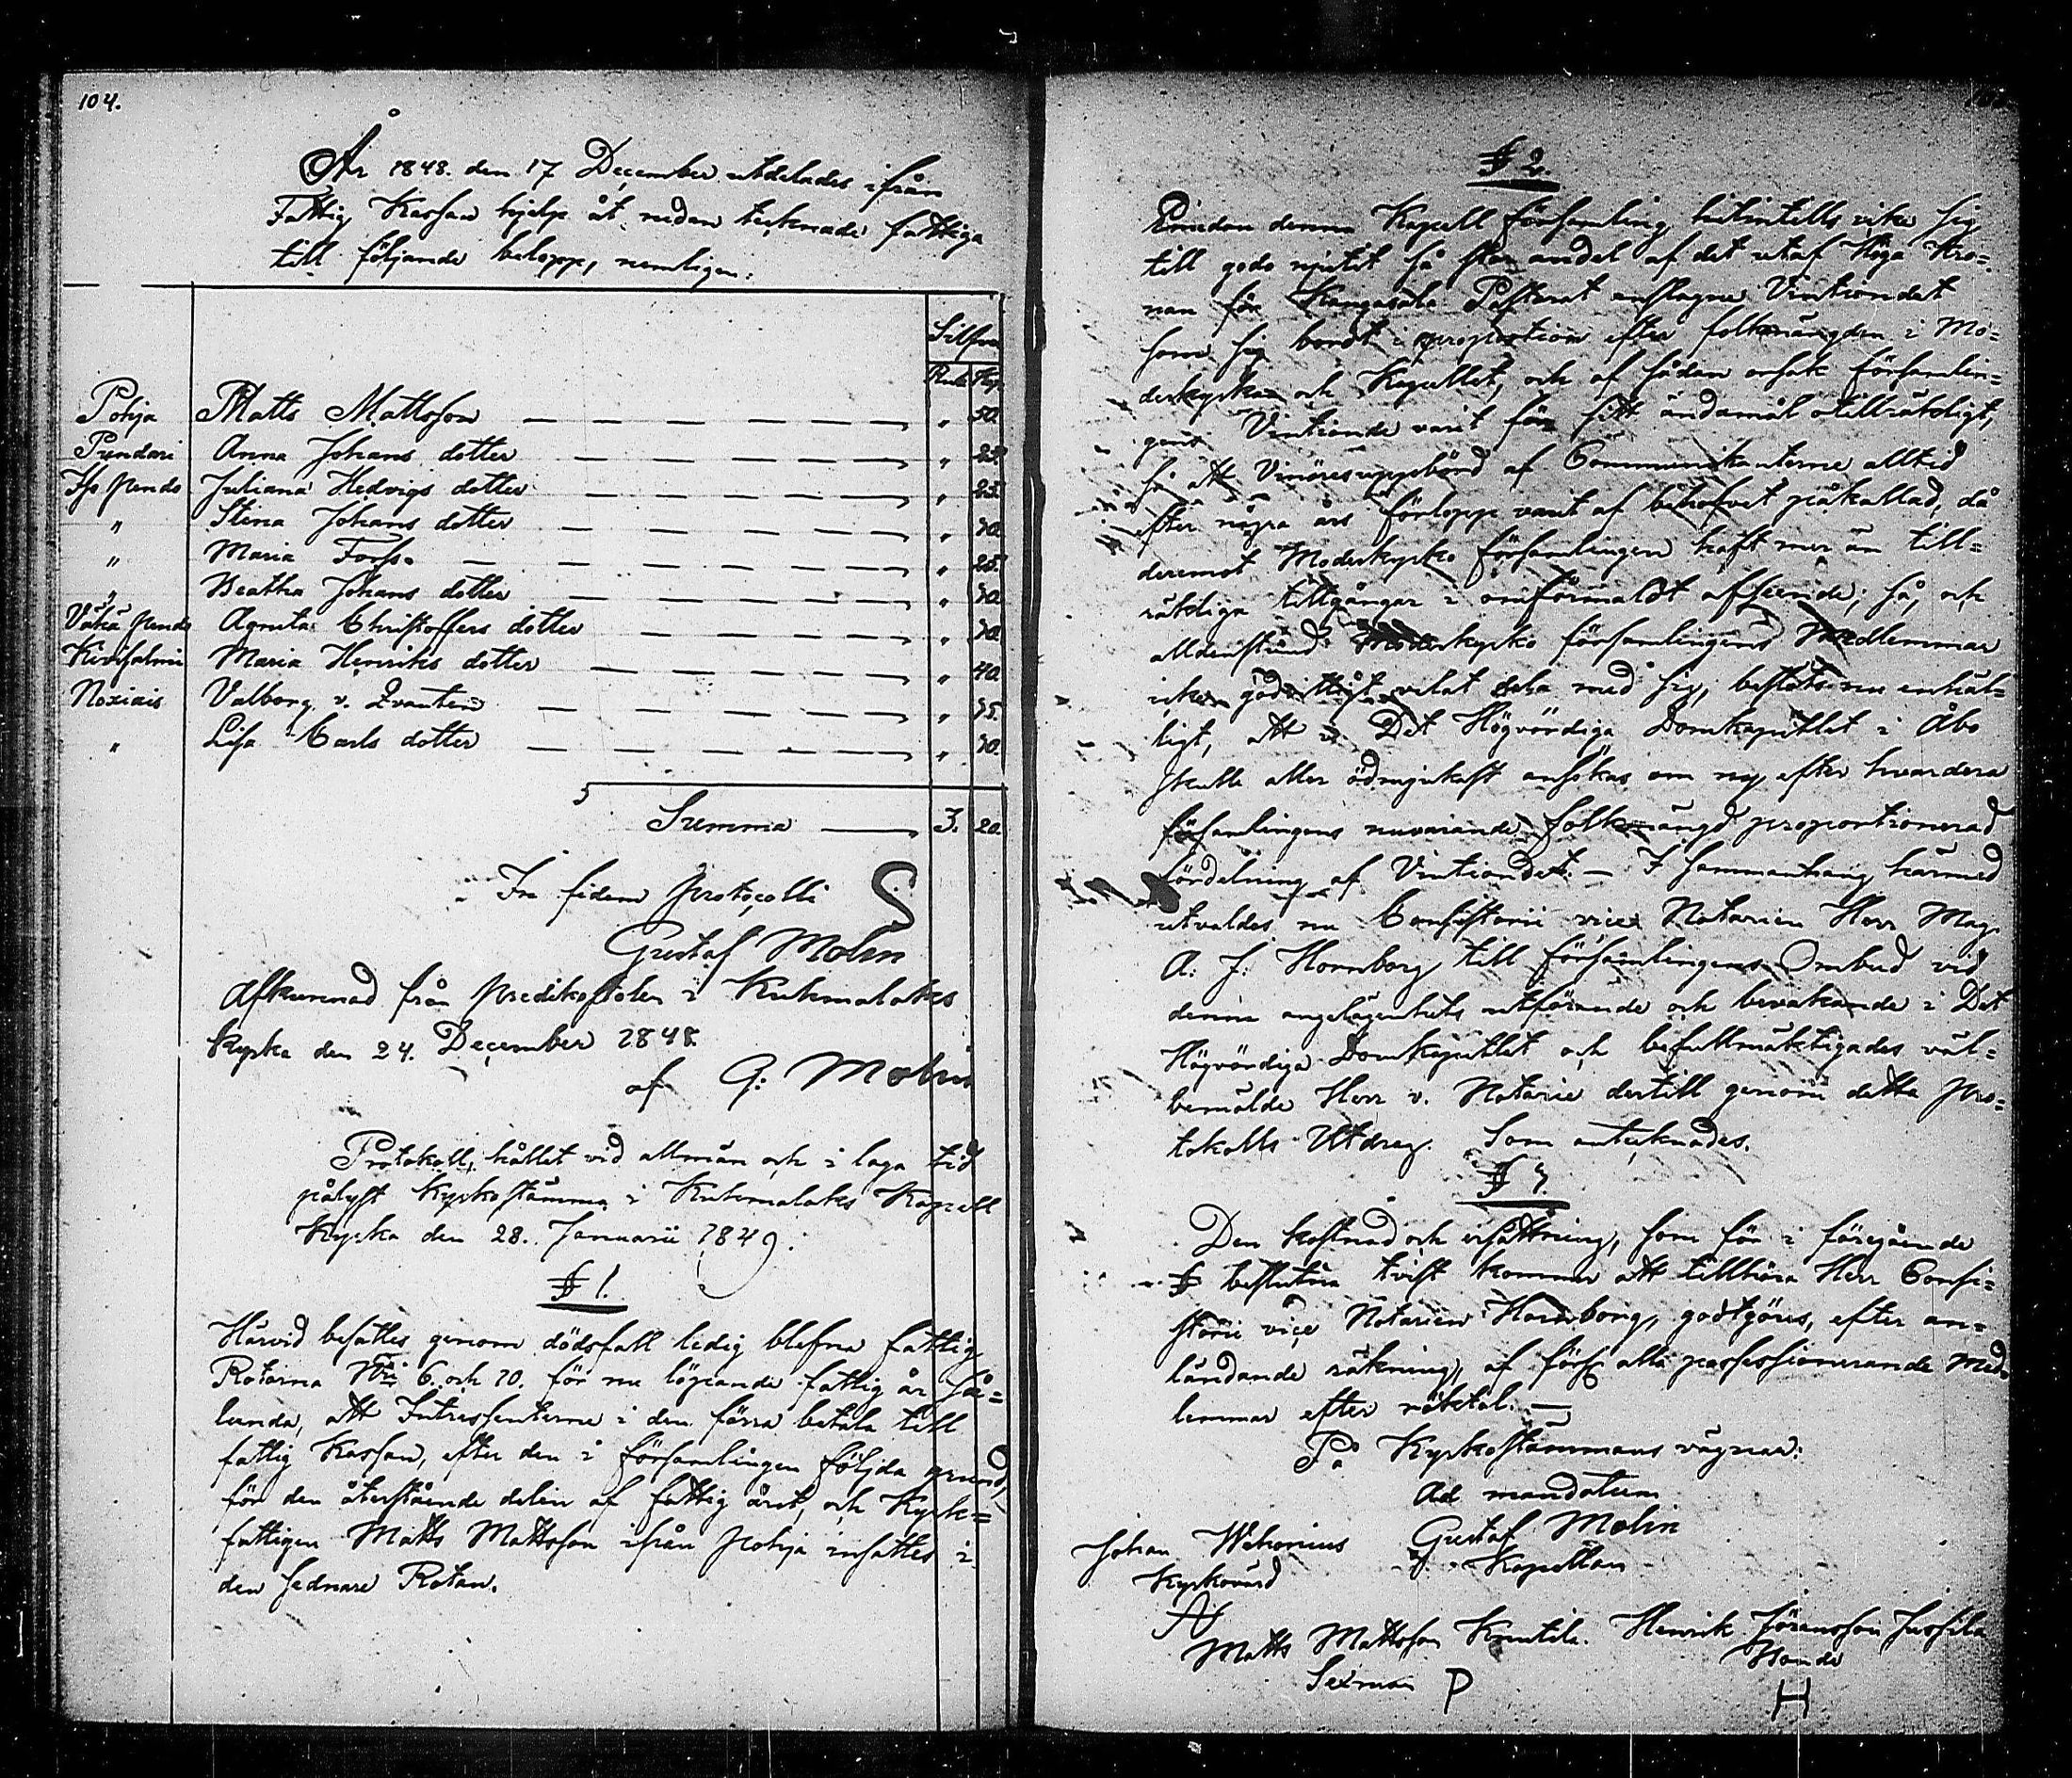 104.
År 1848. den 17 December utdelades ifrån
Fattig Kassan hjelp åt nedan tecknade fattiga
till följande belopp, nemligen:
Silfver
Rub. Kop.
Pohja Matts Mattsson — — — — — — " 50.
Pundari Anna Johans dotter — — — — — — " 25.
Iso pendo Juliana Hedvigs dotter — — — — — — " 25.
" Stina Johans dotter — — — — — — " 30.
" Maria Forss. — — — — — — " 25.
" Beatha Johans dotter — — — — — — " 30.
Vähä pendo Agneta Christoffers dotter — — — — — " 30.
Kivisalmi Maria Henriks dotter — — — — — — " 40.
Noxiais Valborg v. Qvanten — — — — — — " 35.
" Lisa Carls dotter — — — — — — " 30.
Summa — 3. 20.
In fidem protocolli
Gustaf Molin
Afkunnad från predikostolen i Kuhmalaks
kyrka den 24. December 1848.
af G: Molin
Protokoll, hållet vid allmän och i laga tid
pålyst Kyrkostämma i Kuhmalaks Kapell
Kyrka den 28. Januarii 1849.
§ 1.
Härvid besattes genom dödsfall ledig blefna fattig
Rotarna N:ris 6. och 10. för nu löpande fattig år så=
lunda, att Intressenterne i den förra betala till
fattig Kassan, efter den i församlingen följda grund,
för den återstående delen af fattig året, och Kyrk=
fattigen Matts Mattsson ifrån Pohja insattes i
den sednare Rotan.
§ 2.
Emedan denna Kapell församling hitintills icke sig
till godo njutit så stor andel af det utaf Höga Kro=
nan för Kangasala Pastorat anslagne Vintiondet
som sig bordt i proportion efter folkmängden i Mo=
derkyrkan och Kapellet, och af sådan orsak församlin=
gens Vintionde varit för sitt ändamål otillräckligt,
så att Vinöresuppbörd af Communikanterne alltid
efter några års förlopp varit af behofvet påkallad, då
deremot Moderkyrko församlingen haft mer än till=
räckliga tillgångar i omförmäldt afseende; så, och
alldenstund Moderkyrko församlingens Medlemmar
icke godvilligt velat dela med sig, beslöts nu enhäl=
ligt, att i Det Högvördiga Domkapitlet i Åbo
skulle aller ödmjukast ansökas om ny, efter hvardera
församlingens nuvarande folkmängd proportionerad
fördelning af Vintiondet. — I sammanhang härmed
utvaldes nu Consistorii vice Notarien Herr Mag.
A: J: Hornborg till församlingens Ombud vid
denna angelägenhets utförande och bevakande i Det
Högvördiga Domkapitlet och befullmäktigades väl=
bemälde Herr v. Notarie dertill genom detta Pro=
tokolls Utdrag. Som antecknades.
§ 3.
Den kostnad och ersättning, som för i föregående
§ beslutna tvist kommer att tillhöra Herr Consi=
storii vice Notarien Hornborg, godtgöres, efter an=
ländande räkning, af förs: alla possessionerande Med=
lemmar efter röktal. —
På Kyrkostämmans vägnar:
Ad mandatum
Gustaf Molin
Kapellan
Johan
Kyrkovärd
Matts Mattsson Knutila. Henrik Jöransson Jussila
Sexman P H